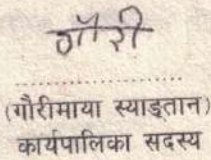 गौरी
..............................
(गौरीमाया स्याङ्तान)
कार्यपालिका सदस्य